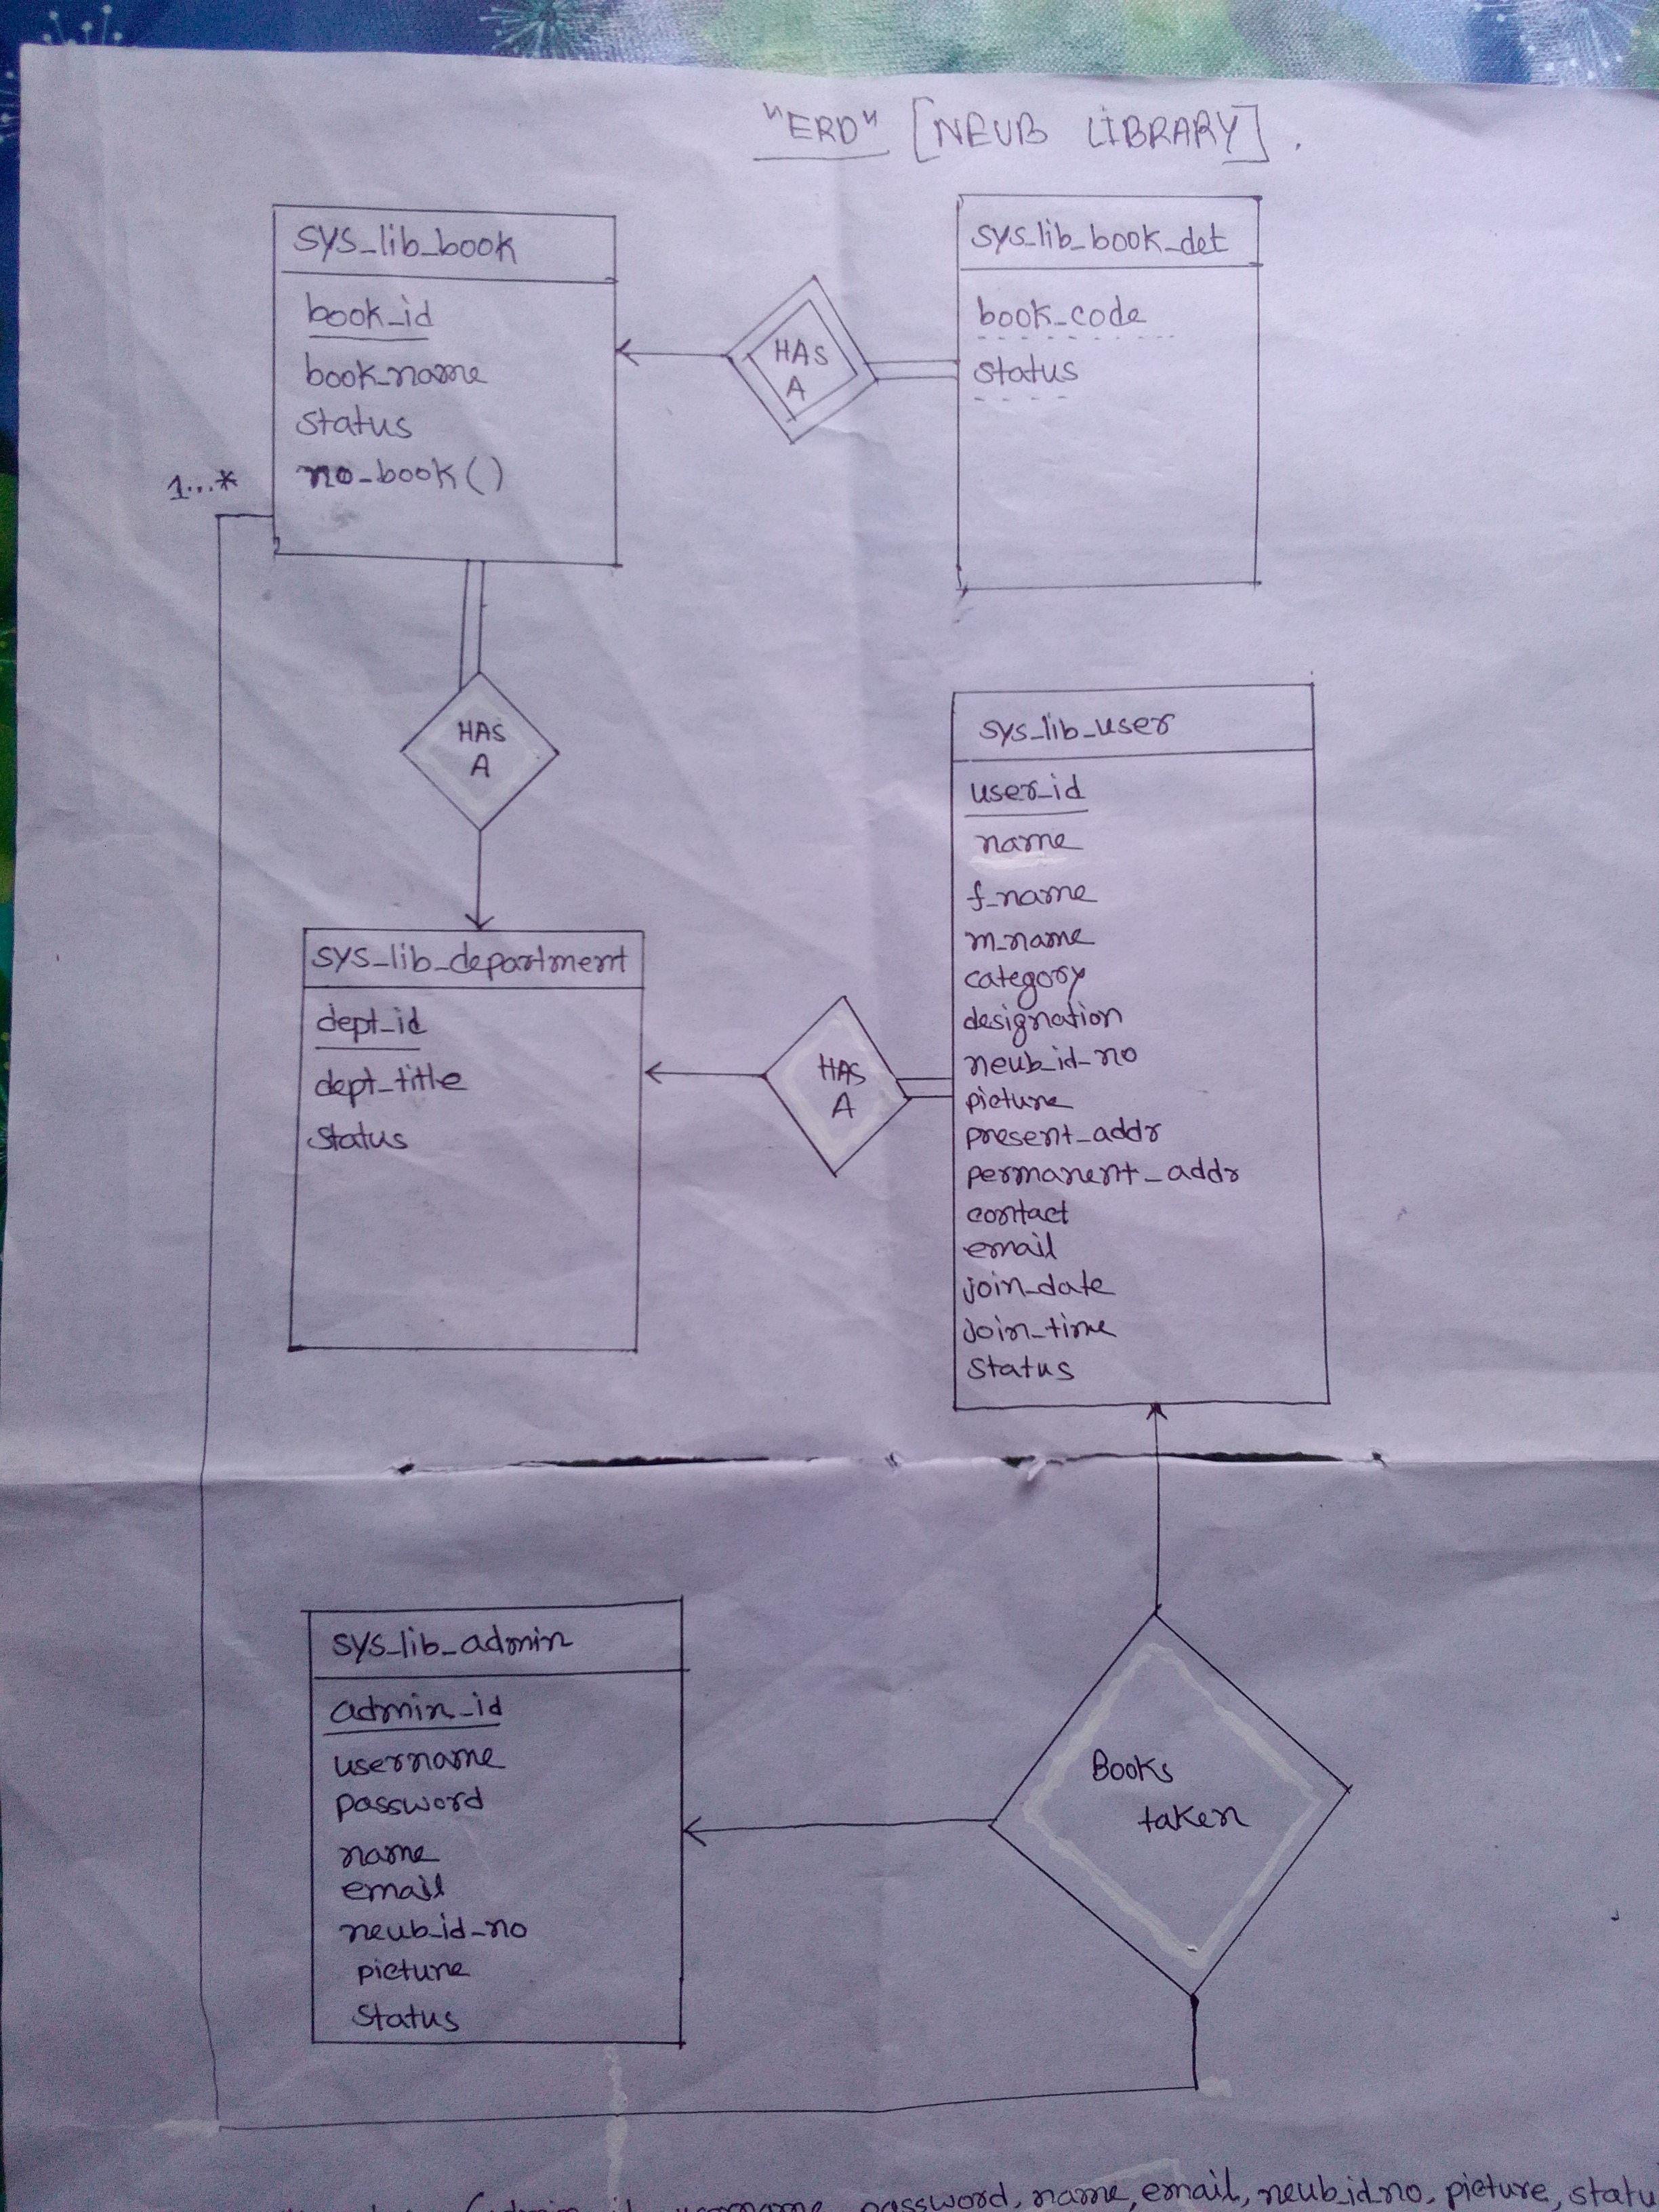 "ERD" [NEUB LIBRARY].
sys_lib_book
book_id
book_name
status
no_book()
1...*
HAS
A
sys_lib_book_det
book_code
status
HAS
A
sys_lib_department
dept_id
dept_title
status
HAS
A
sys_lib_user
user_id
name
f_name
m_name
category
designation
neub_id_no
picture
present_addr
permanent_addr
contact
email
join_date
join_time
status
sys_lib_admin
admin_id
username
password
name
email
neub_id_no
picture
status
Books
taken
password, name, email, neub_id_no, picture,